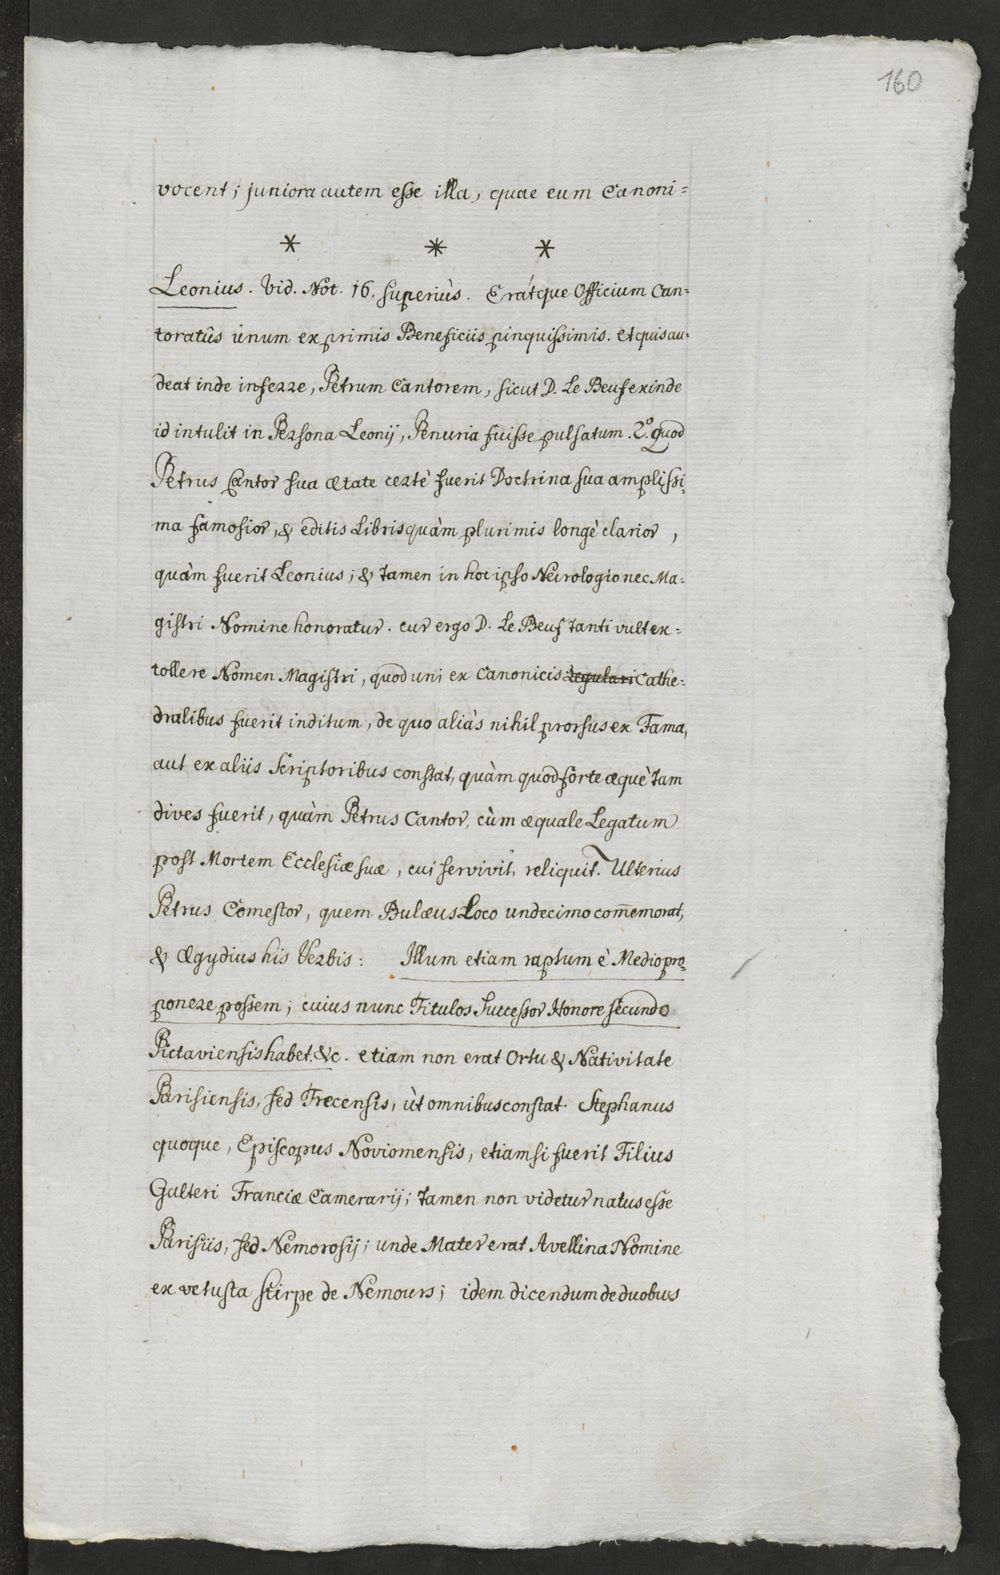 160
vocent; juniora autem esse illa, quae eum Canoni=
* * *
Leonius. Vid. Not. 16. superiùs. Erátque Officium Can=
toratûs unum ex primis Beneficiis pinquissimis. et quis au=
deat inde inferre, Petrum Cantorem, sicut D. Le Beuf exinde
id intulit in Persona Leonij, Penuria fuisse pulsatum. 2.º quod
Petrus Cantor sua ætate certè fuerit Doctrina sua amplissi=
ma famosior, & editis Libris quàm plurimis longè clarior,
quàm fuerit Leonius; & tamen in hoc ipso Necrologio nec Ma=
gistri Nomine honoratur. cur ergo D. Le Beuf tanti vult ex=
tollere Nomen Magistri, quod uni ex Canonicis regulari Cathe=
dralibus fuerit inditum, de quo aliàs nihil prorsus ex Fama,
aut ex aliis Scriptoribus constat, quàm quod forte æquè tam
dives fuerit, quàm Petrus Cantor, cùm æquale Legatum
post Mortem Ecclesiæ suæ, cui servivit, reliquit. Ulterius
Petrus Comestor, quem Bulæus Loco undecimo com̄emorat,
& Ægydius his Verbis: Illum etiam raptum è Medio pro=
ponere possem; cuius nunc Titulos Successor Honore secundo
Pictaviensis habet. &c. etiam non erat Ortu & Nativitate
Parisiensis, sed Trecensis, ùt omnibus constat. Stephanus
quoque, Episcopus Noviomensis, etiamsi fuerit Filius
Galteri Franciæ Camerarij; tamen non videtur natus esse
Parisiis, sed Nemorosij; unde Mater erat Avellina Nomine
ex vetusta stirpe de Nemours; idem dicendum de duobus